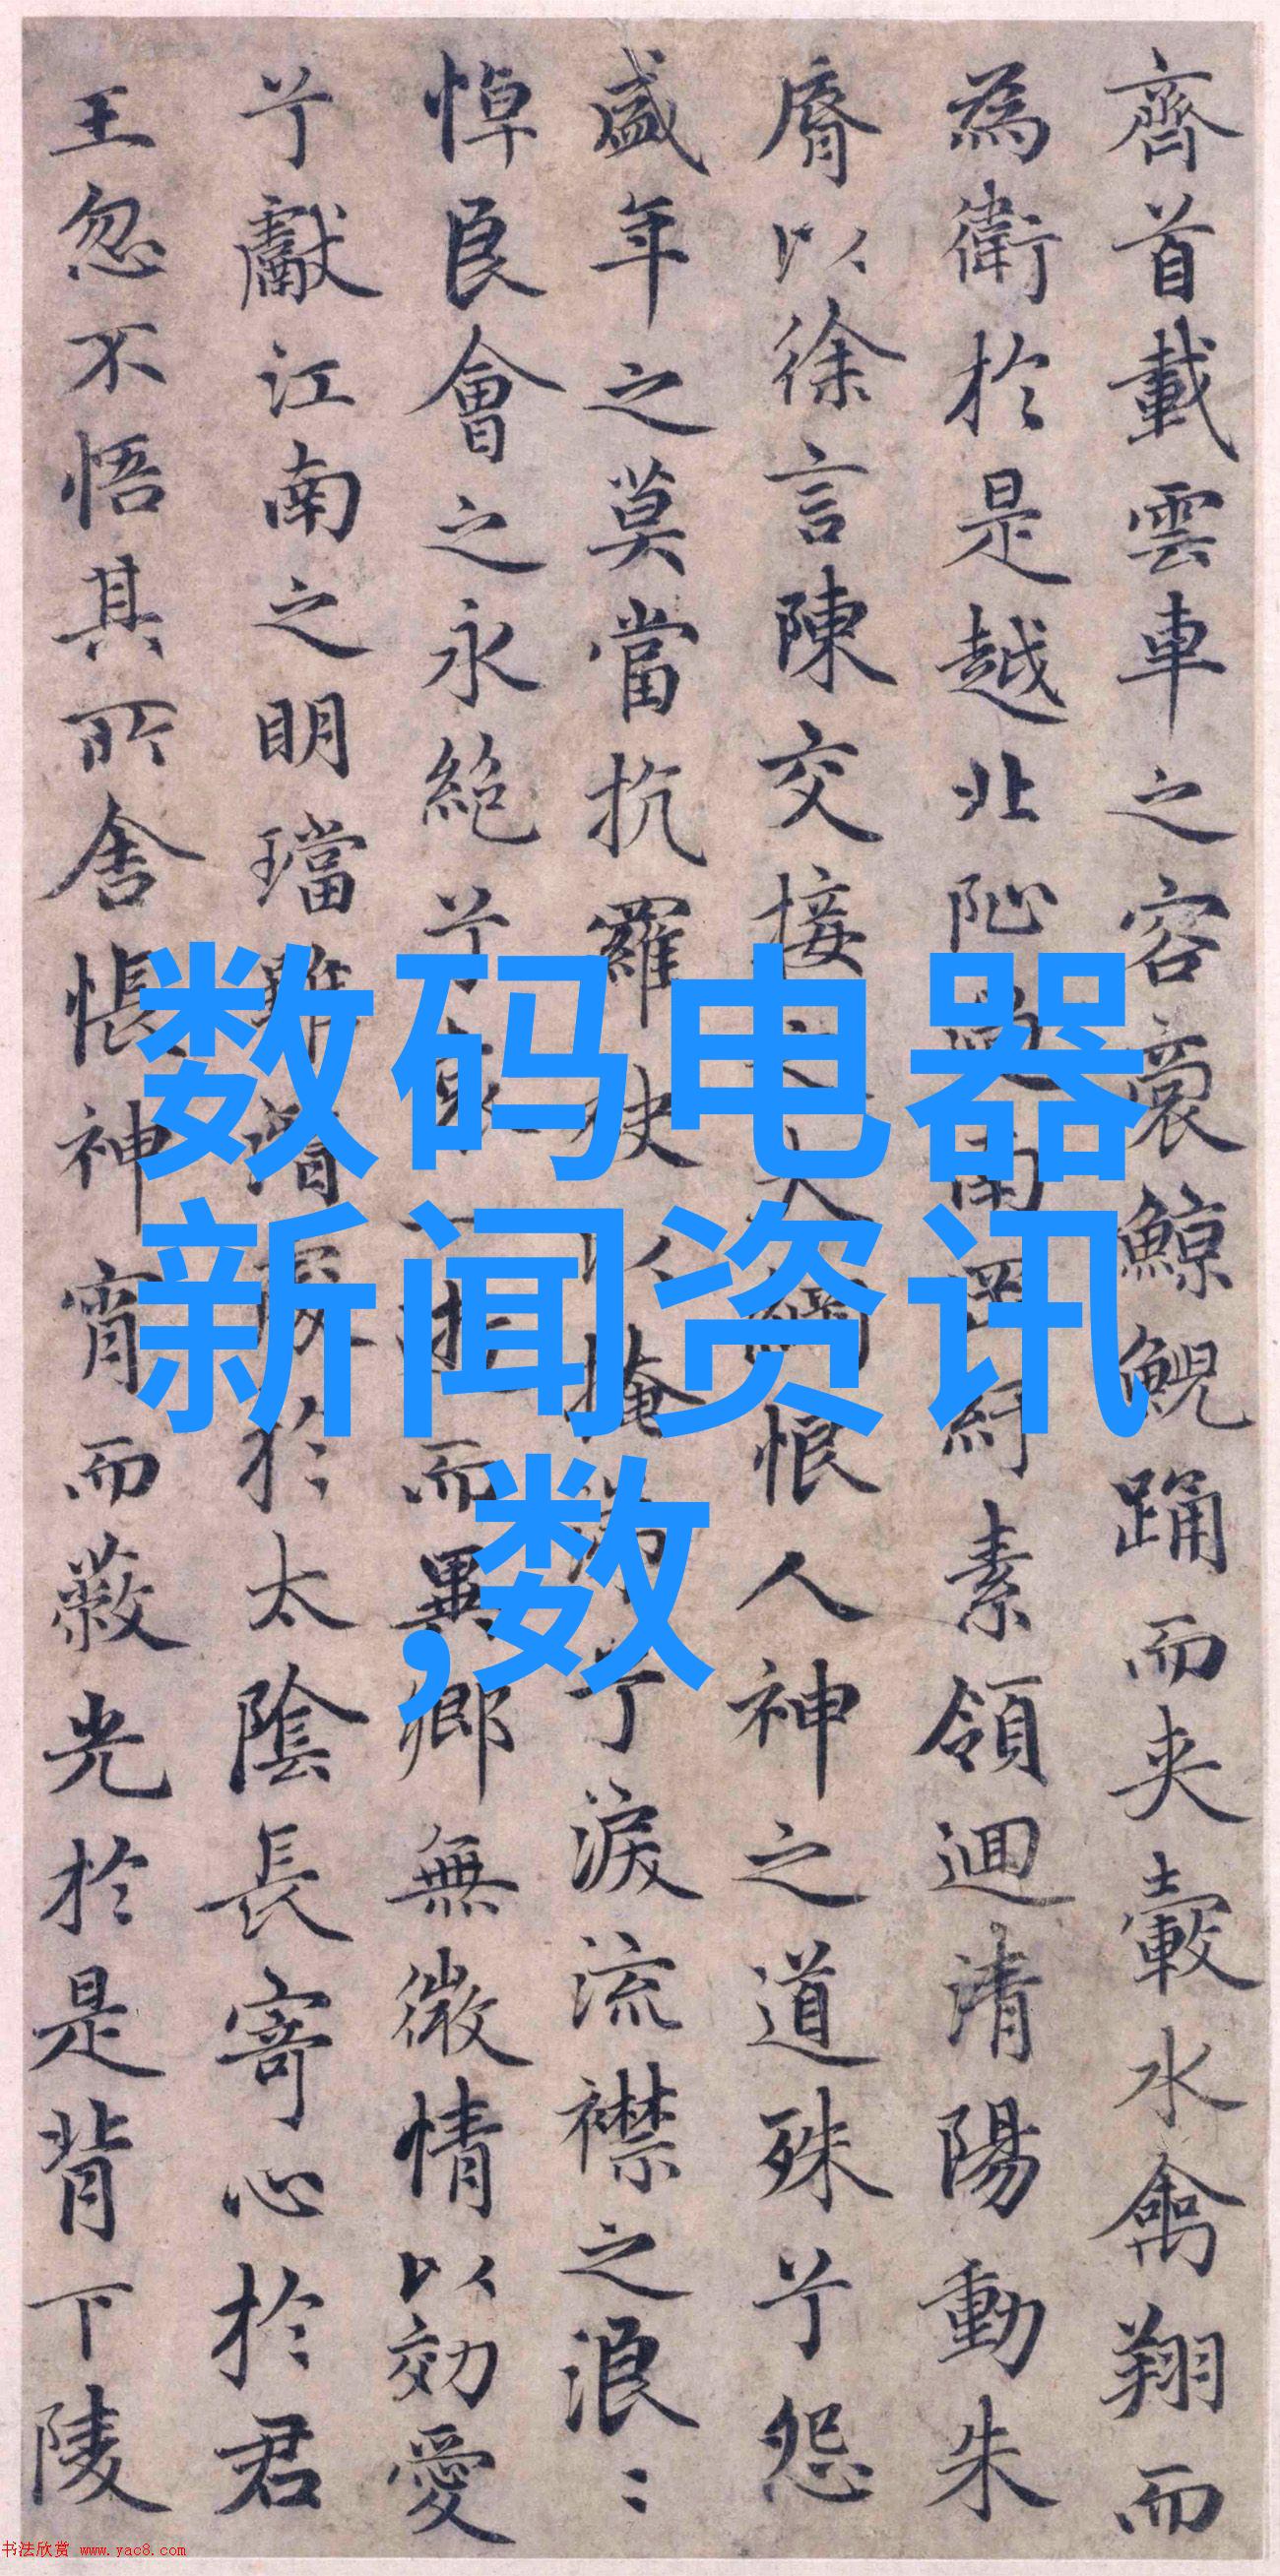 齊首載雲車之容裔鯨鯢踊而夾轂水禽翔而
為衛於是越北沚過南岡紆素領迴清陽動朱
脣以徐言陳交接之大綱恨人神之道殊兮怨
盛年之莫當抗羅袂以掩涕兮淚流襟之浪〻
悼良會之永絶兮哀一逝而異鄉無微情以効愛
兮獻江南之明璫雖潛處於太陰長寄心於君
王忽不悟其所舍悵神宵而蔽光於是背下陵
数码电器
新闻资讯
,数
书法欣赏 www.yac8.com